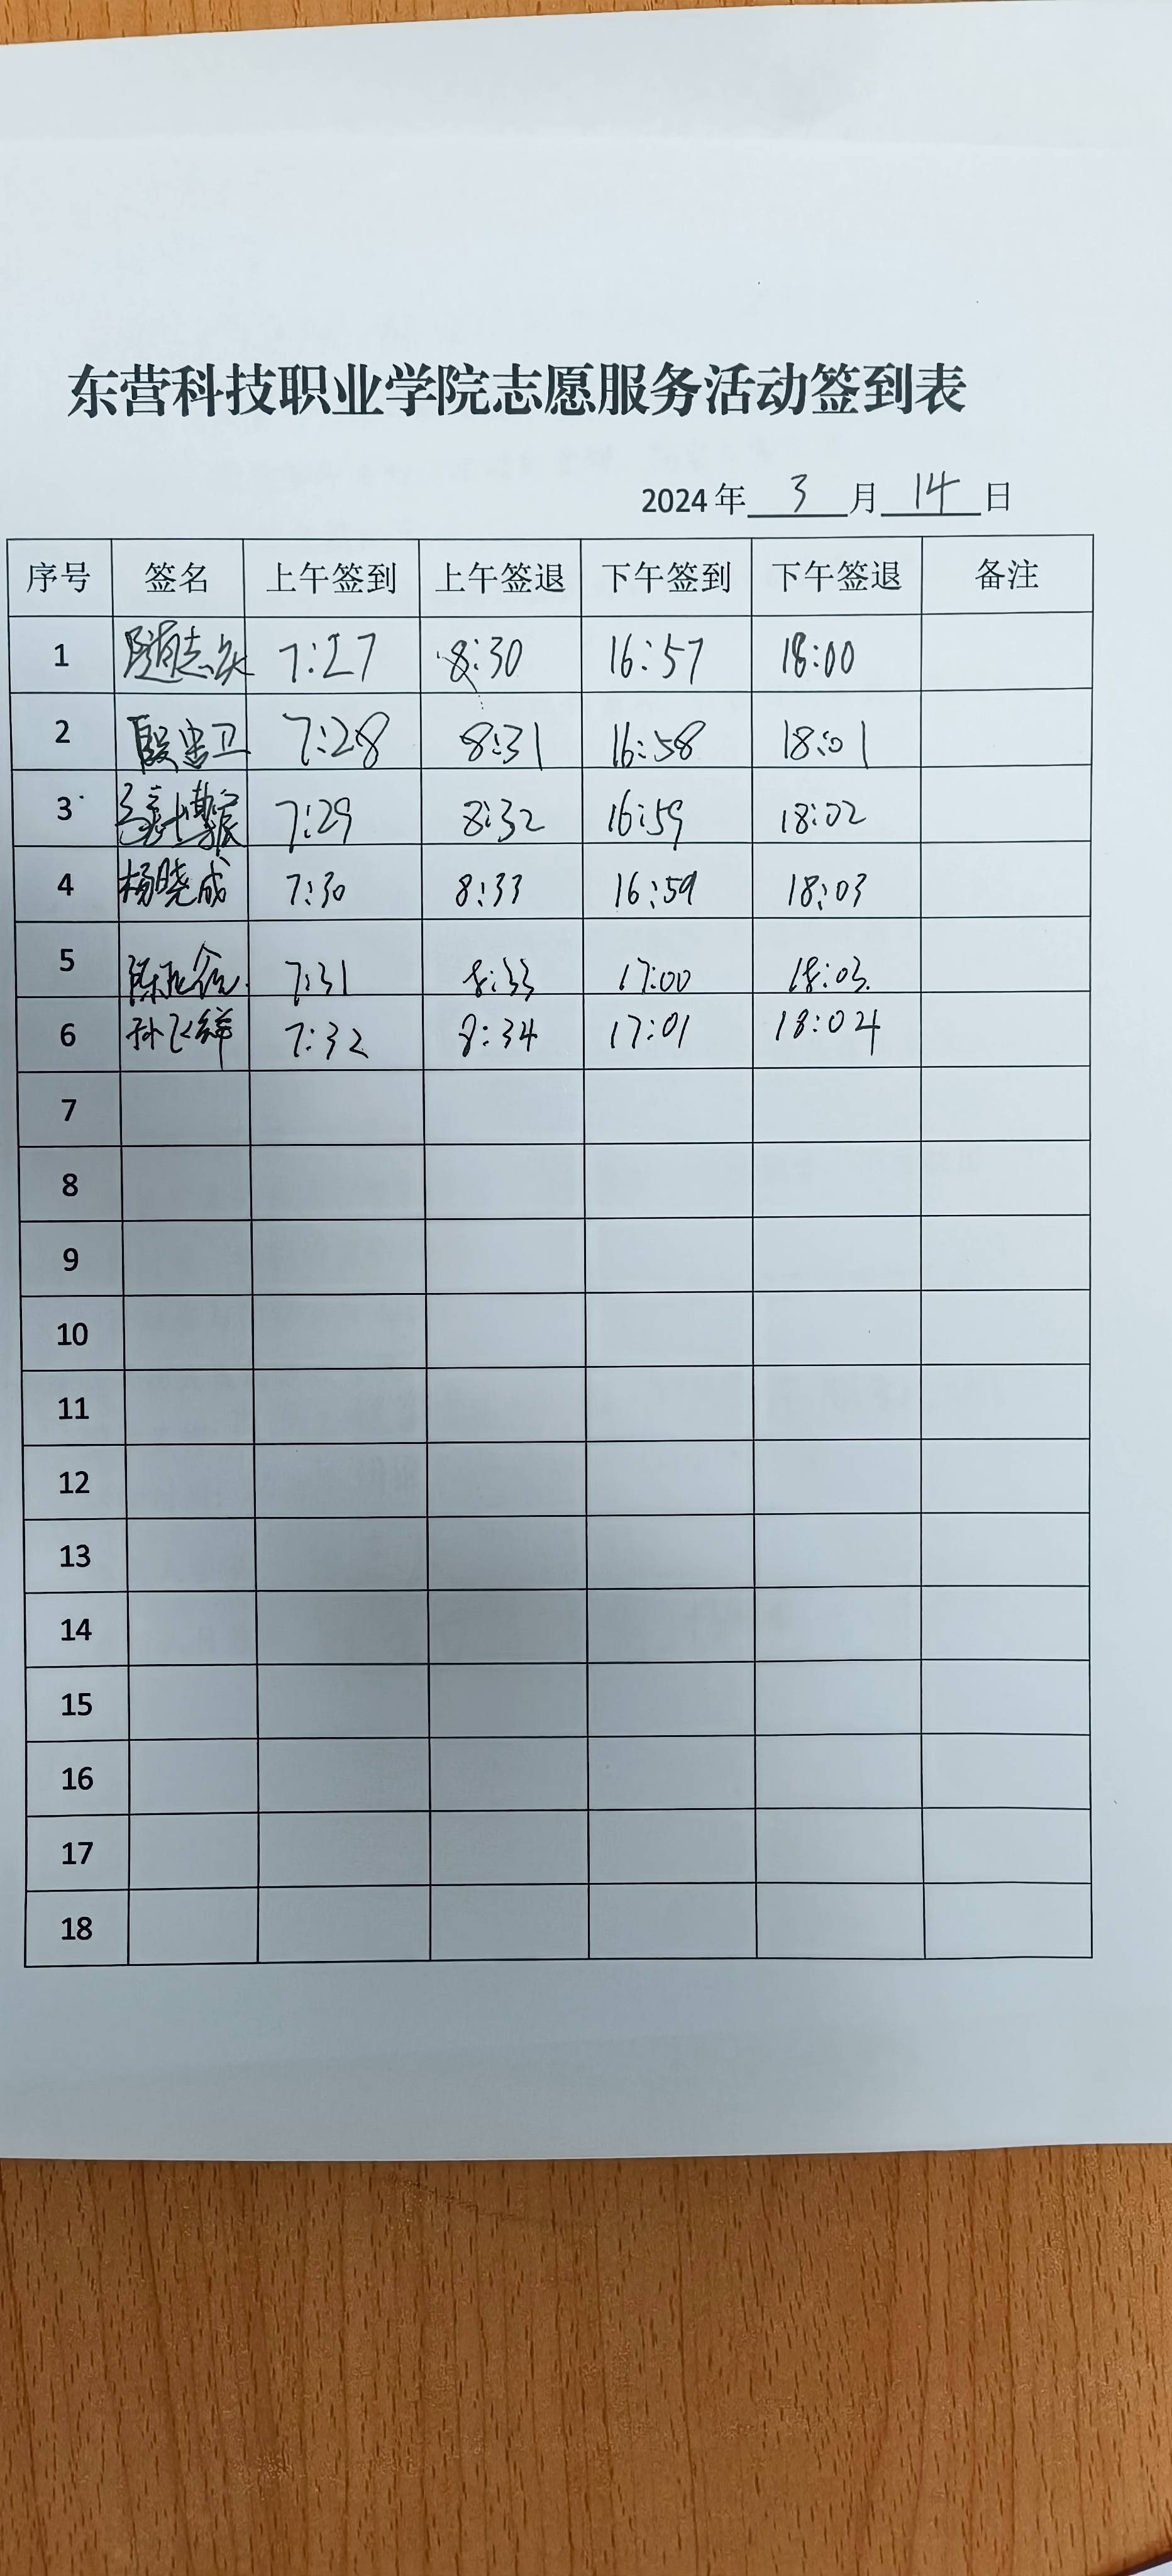 东营科技职业学院志愿服务活动签到表
2024 年 3 月 14 日
序号 签名 上午签到 上午签退 下午签到 下午签退 备注
1 随志 7:27 8:30 16:57 18:00
2 殷忠卫 7:28 8:31 16:58 18:01
3 博宸 7:29 8:32 16:59 18:02
4 杨晓成 7:30 8:33 16:59 18:03
5 陈 7:31 8:33 17:00 18:03
6 孙飞祥 7:32 8:34 17:01 18:04
7
8
9
10
11
12
13
14
15
16
17
18